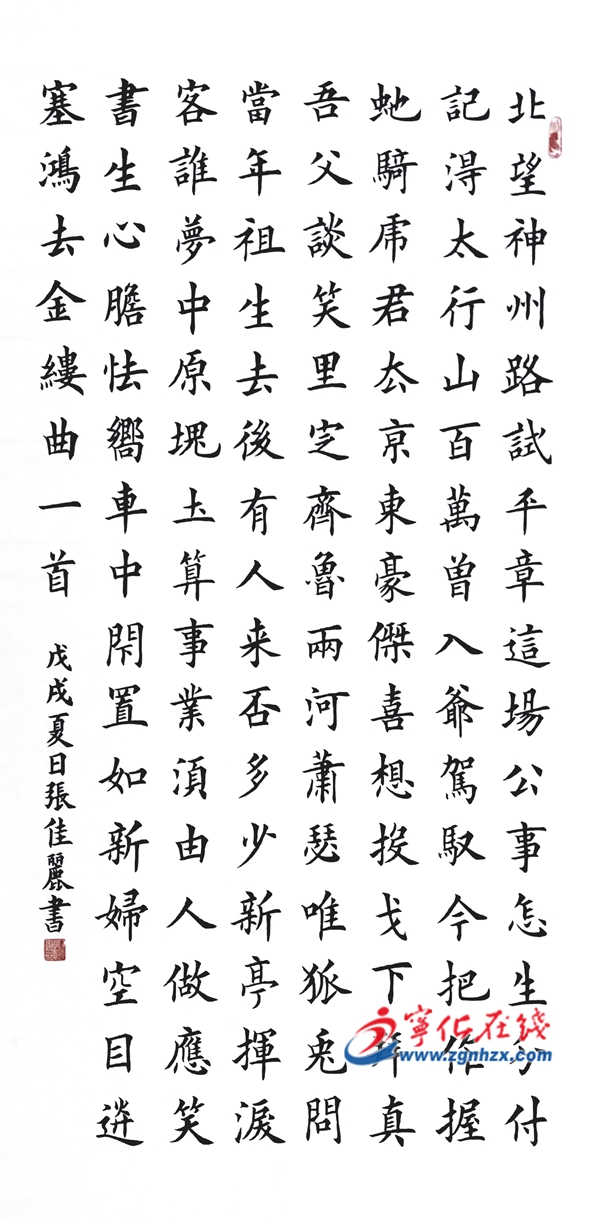 北望神州路試平章這場公事怎生分付
記得太行山百萬曾入爺駕馭今把作握
虵騎虎君去京東豪傑喜想投戈下拜真
吾父談笑里定齊魯兩河蕭瑟唯狐兔問
當年祖生去後有人来否多少新亭揮淚
客誰夢中原塊土算事業須由人做應笑
書生心膽怯嚮車中閇置如新婦空目送
塞鴻去金縷曲一首
戊戌夏日張佳麗書
寧化在线
www.zgnhzx.com